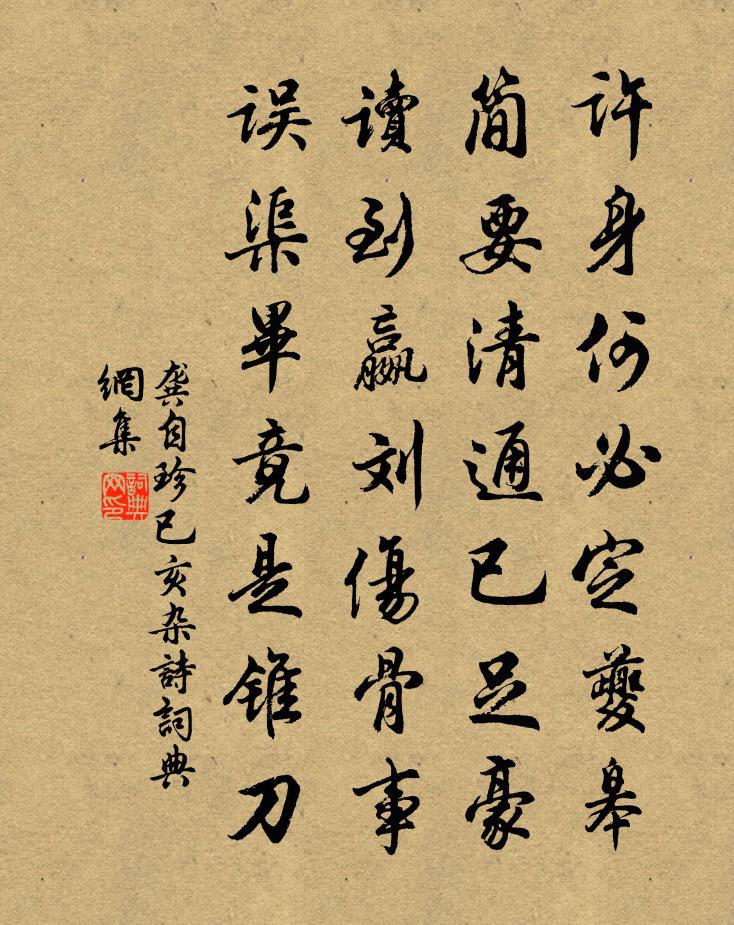 许身何必定夔皋
简要清通已足豪
读到嬴刘傷骨事
误渠畢竟是锥刀
龚自珍已亥杂詩詞典
網集
詞典
网印